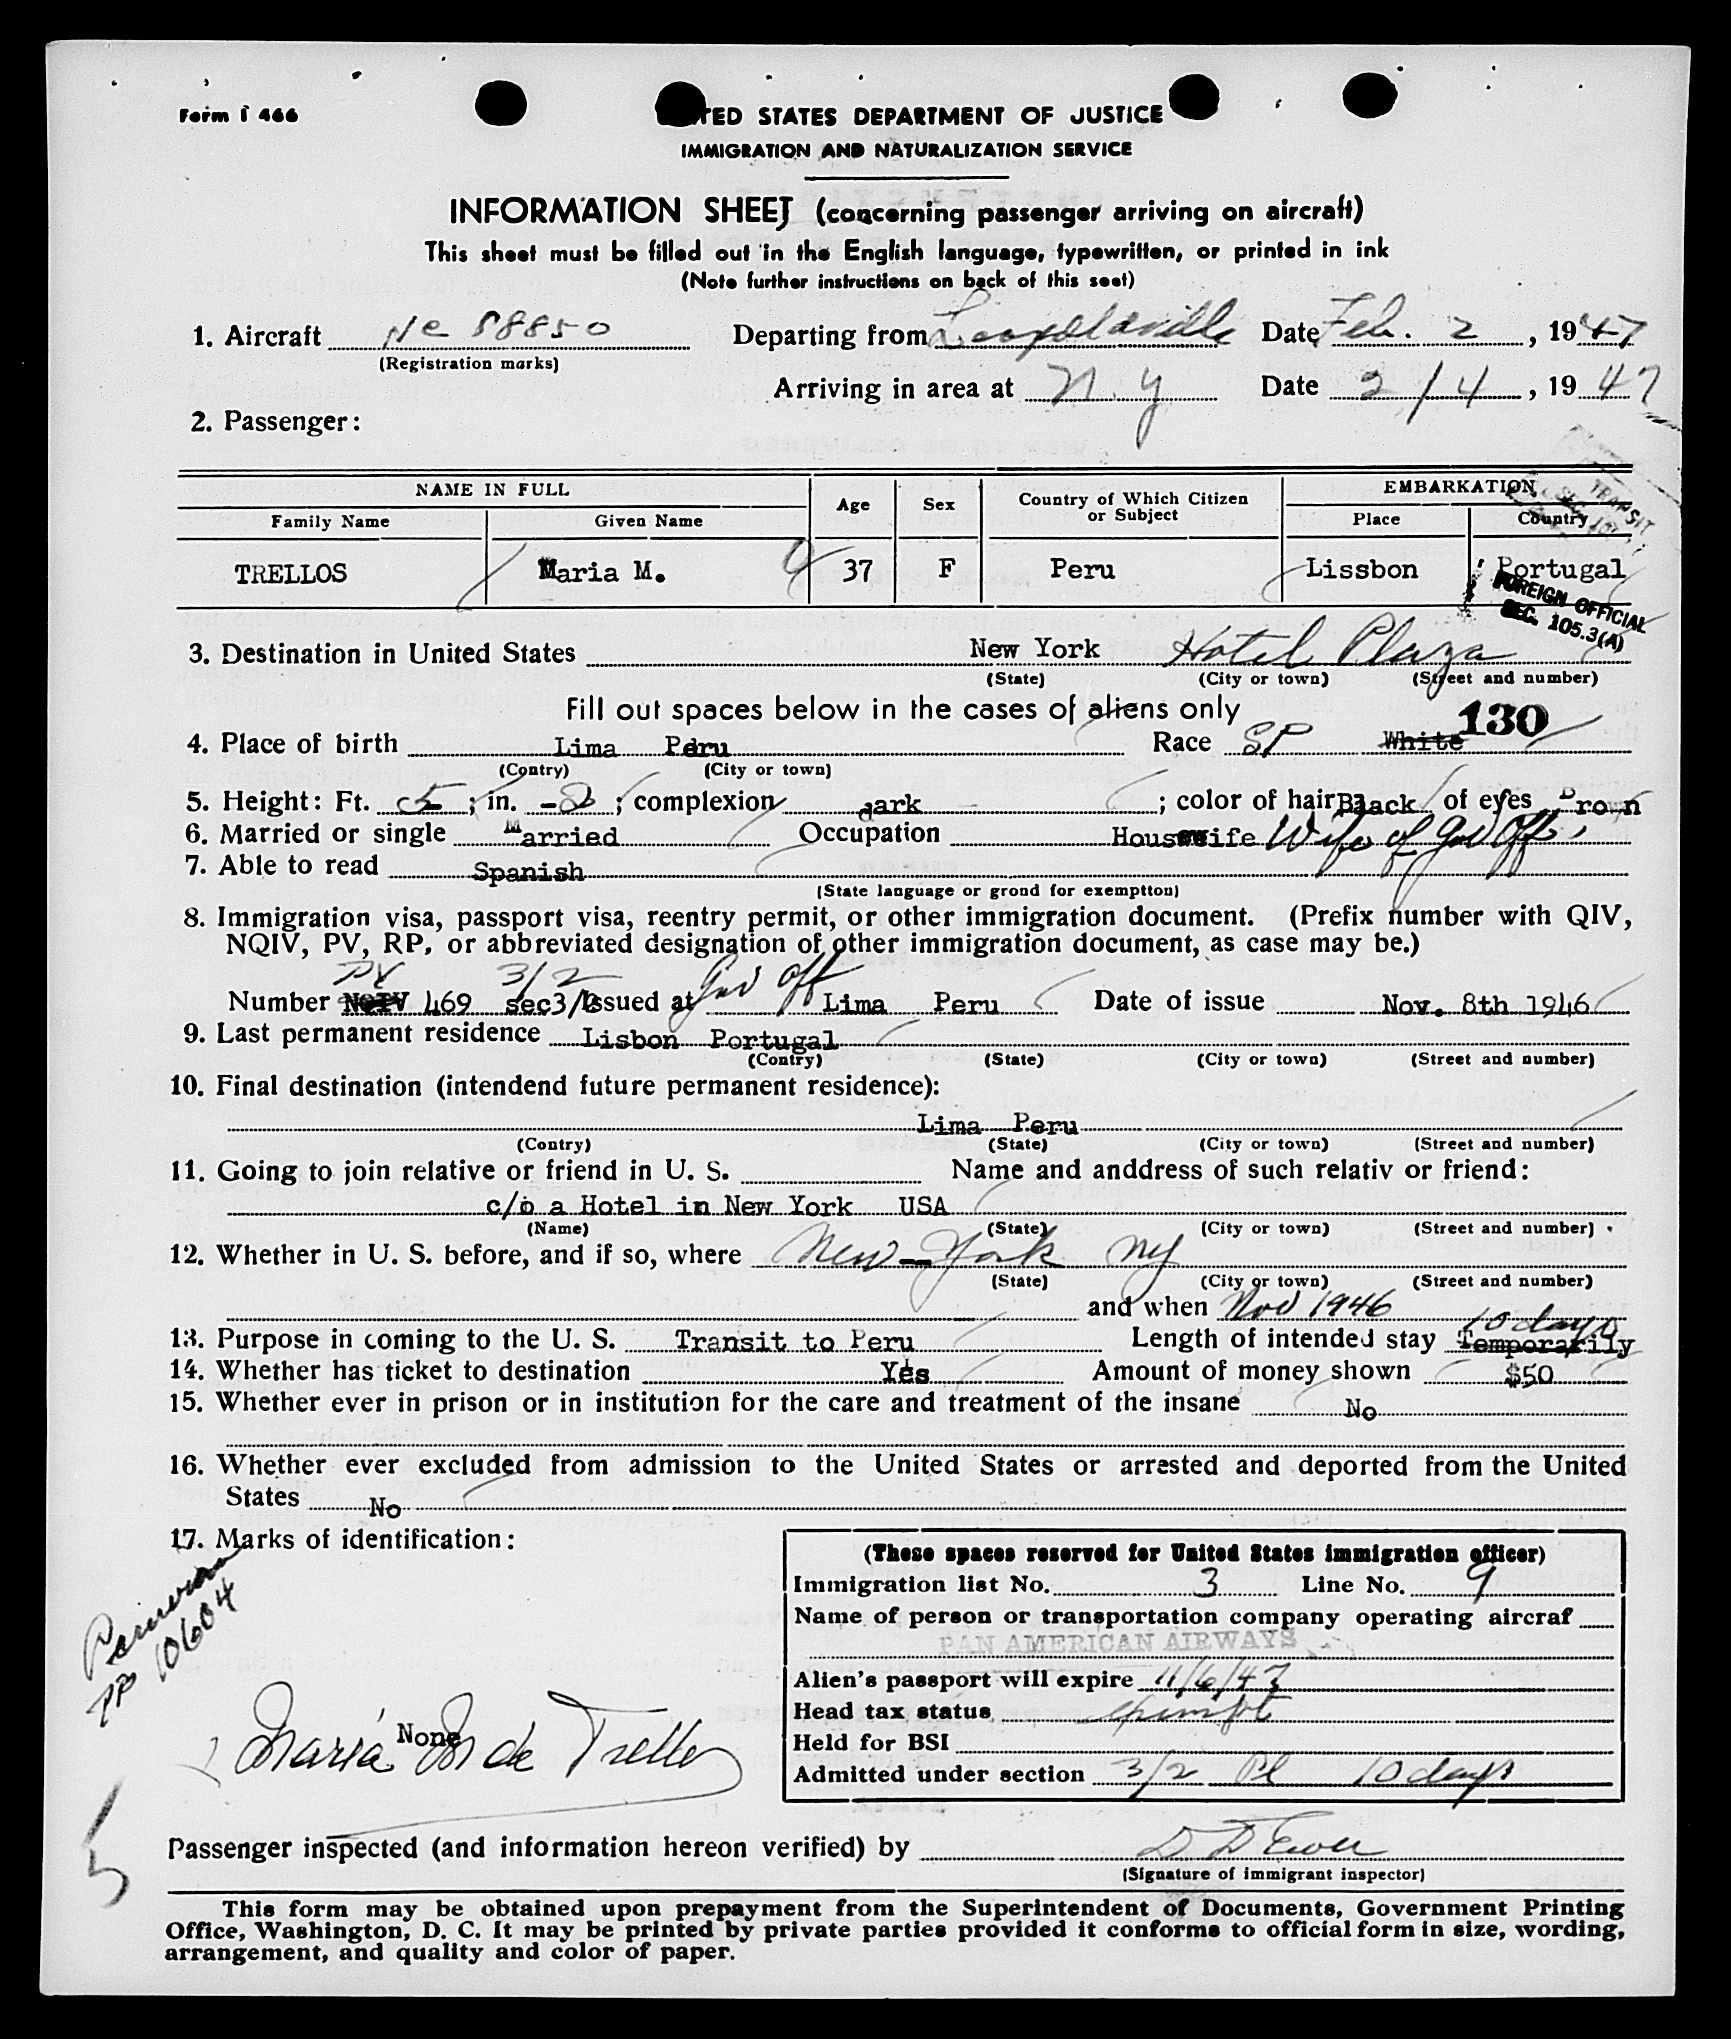 Form I 466
UNITED STATES DEPARTMENT OF JUSTICE
IMMIGRATION AND NATURALIZATION SERVICE
INFORMATION SHEET (concerning passenger arriving on aircraft)
This sheet must be filled out in the English language, typewritten, or printed in ink
(Note further instructions on back of this seet)
1. Aircraft Nc 88850 Departing from Leopoldville Date Feb. 2, 1947
(Registration marks)
Arriving in area at N.Y Date 2/4, 1947
2. Passenger:
NAME IN FULL Age Sex Country of Which Citizen or Subject EMBARKATION
Family Name Given Name Place Country
TRANSIT
TRELLOS Maria M. 37 F Peru Lissbon Portugal
FOREIGN OFFICIAL
SEC. 105.3(A)
3. Destination in United States New York Hotel Plaza
(State) (City or town) (Street and number)
Fill out spaces below in the cases of aliens only
130
4. Place of birth Lima Peru Race SP White
(Contry) (City or town)
5. Height: Ft. 5; in. -2; complexion dark; color of hair Black of eyes Bro n
6. Married or single Married Occupation Housewife Wife of Gov Off.
7. Able to read Spanish
(State language or grond for exemptton)
8. Immigration visa, passport visa, reentry permit, or other immigration document. (Prefix number with QIV,
NQIV, PV, RP, or abbreviated designation of other immigration document, as case may be.)
PV 3/2 Gov Off
Number NQIV 469 sec3/2 Issued at Lima Peru Date of issue Nov. 8th 1946
9. Last permanent residence Lisbon Portugal
(Contry) (State) (City or town) (Street and number)
10. Final destination (intendend future permanent residence):
Lima Peru
(Contry) (State) (City or town) (Street and number)
11. Going to join relative or friend in U. S. Name and anddress of such relativ or friend:
c/o a Hotel in New York USA
(Name) (State) (City or town) (Street and number)
12. Whether in U. S. before, and if so, where New-York NY
(State) (City or town) (Street and number)
and when Nov 1946
10 days
13. Purpose in coming to the U. S. Transit to Peru Length of intended stay Temporarily
14. Whether has ticket to destination Yes Amount of money shown $50
15. Whether ever in prison or in institution for the care and treatment of the insane No
16. Whether ever excluded from admission to the United States or arrested and deported from the United
States No
17. Marks of identification:
Peruvian
PP 10604
None
Maria M de Trelles
5
(These spaces reserved for United States immigration officer)
Immigration list No. 3 Line No. 9
Name of person or transportation company operating aircraf
PAN AMERICAN AIRWAYS
Alien's passport will expire 11/6/47
Head tax status exempt
Held for BSI
Admitted under section 3/2 Pl 10 days
Passenger inspected (and information hereon verified) by
(Signature of immigrant inspector)
This form may be obtained upon prepayment from the Superintendent of Documents, Government Printing
Office, Washington, D. C. It may be printed by private parties provided it conforms to official form in size, wording,
arrangement, and quality and color of paper.